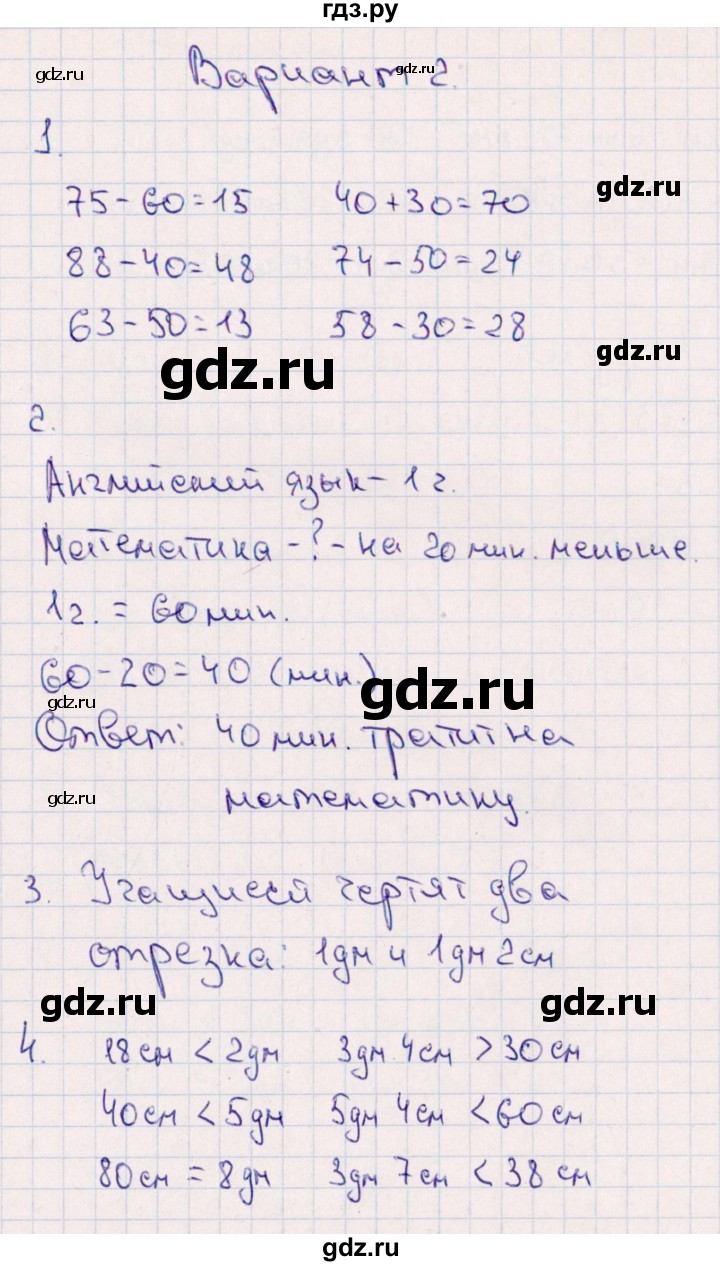 гдз.ру
Вариант 2.
gdz.ru
gdz.ru
1.
75-60=15 40+30=70
gdz.ru
88-40=48 74-50=24
63-50=13 58-30=28
gdz.ru
gdz.ru
2.
Английский язык - 1 ч.
Математика - ? - на 20 мин. меньше.
1 ч. = 60 мин.
60-20=40 (мин.)
gdz.ru
gdz.ru
Ответ: 40 мин. тратит на
математику.
gdz.ru
3. Учащиеся чертят два
отрезка: 1дм и 1дм 2см
gdz.ru
gdz.ru
4. 18см < 2дм 3дм 4см > 30см
40см < 5дм 5дм 4см < 60см
80см = 8дм 3дм 7см < 38см
gdz.ru